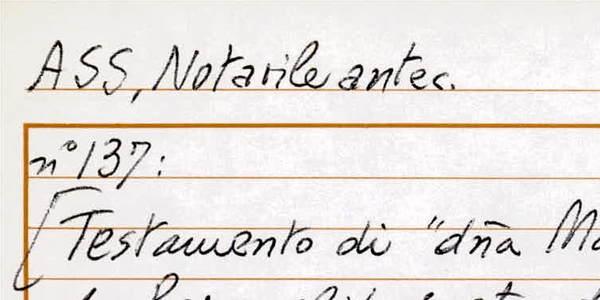 ASS, Notarile antec.
n° 137:
[Testamento di "dña